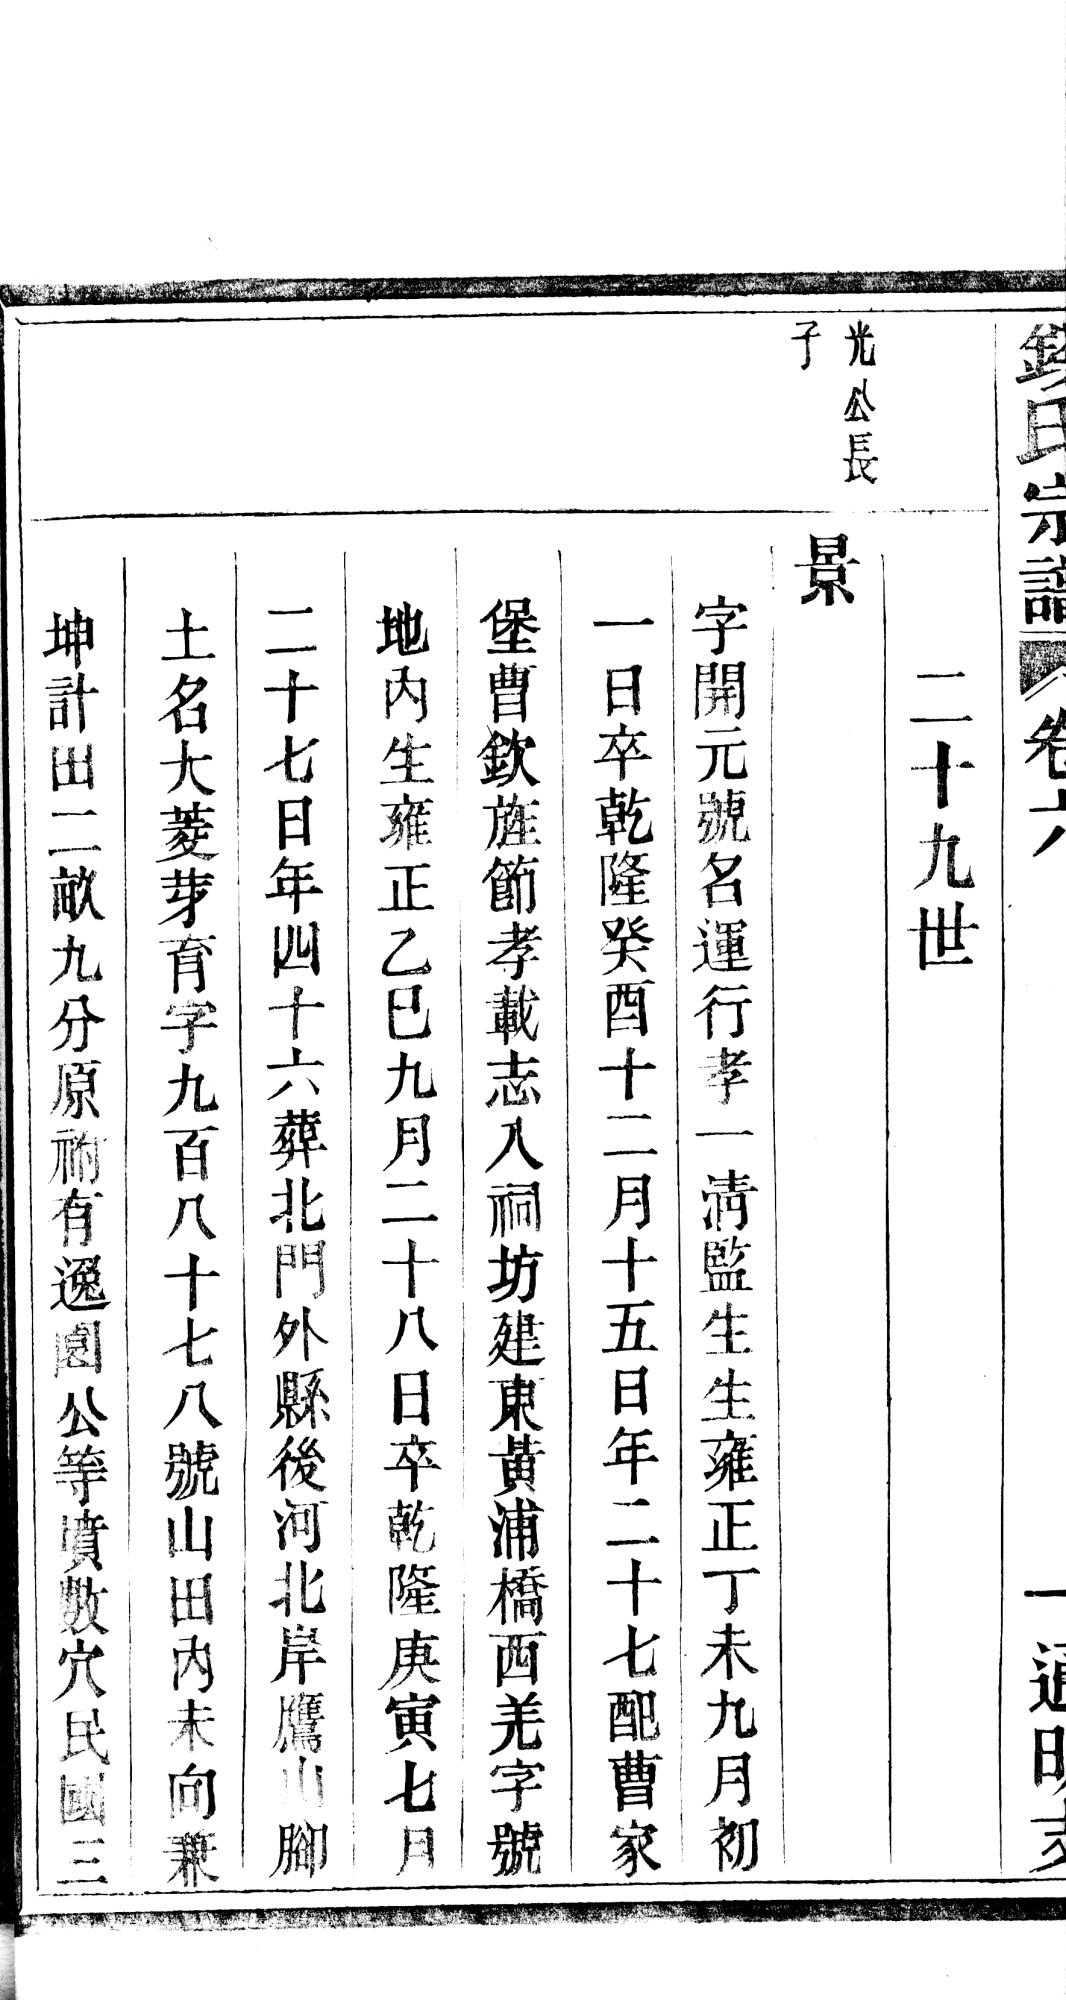 錢氏宗譜 卷六 一 通明支
二十九世
光公長
子
景
字開元號名運行孝一清監生生雍正丁未九月初
一日卒乾隆癸酉十二月十五日年二十七配曹家
堡曹欽旌節孝載志入祠坊建東黃浦橋西羌字號
地內生雍正乙巳九月二十八日卒乾隆庚寅七月
二十七日年四十六葬北門外縣後河北岸鷹山腳
土名大菱芽育字九百八十七八號山田內未向兼
坤計田二畝九分原祔有逸園公等墳數穴民國三